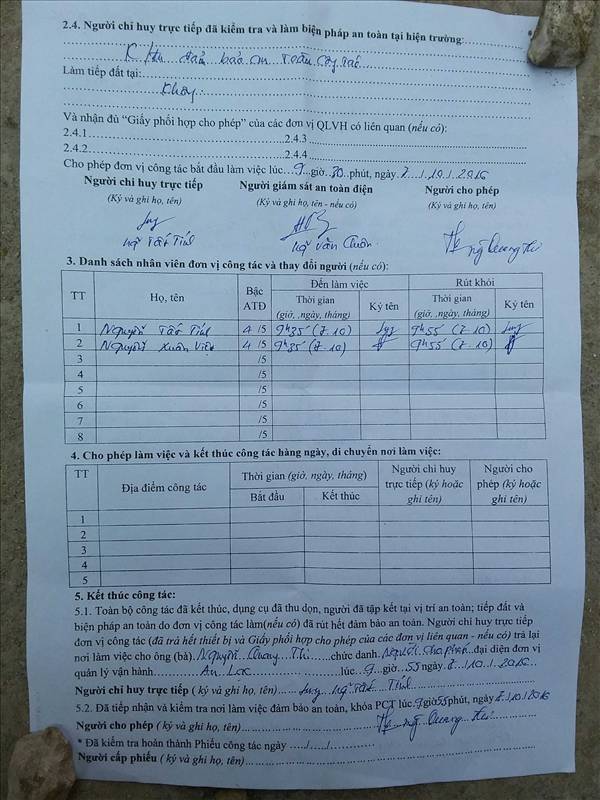 2.4. Người chỉ huy trực tiếp đã kiểm tra và làm biện pháp an toàn tại hiện trường:
đảm bảo an toàn công tác
Làm tiếp đất tại: Không
Và nhận đủ "Giấy phối hợp cho phép" của các đơn vị QLVH có liên quan (nếu có):
2.4.1 2.4.3
2.4.2 2.4.4
Cho phép đơn vị công tác bắt đầu làm việc lúc 9 giờ 30 phút, ngày / 10 / 2016
Người chỉ huy trực tiếp Người giám sát an toàn điện Người cho phép
(Ký và ghi họ, tên) (Ký và ghi họ, tên - nếu có) (Ký và ghi họ, tên)
Ng Tất Tính Ng Văn Chuẩn Ng Quang Thi
3. Danh sách nhân viên đơn vị công tác và thay đổi người (nếu có):
TT Họ, tên Bậc ATĐ Đến làm việc Rút khỏi
Thời gian (giờ, ,ngày, tháng) Ký tên Thời gian (giờ, ,ngày, tháng) Ký tên
1 Nguyễn Tất Tính 4 /5 9h35 (7-10) 9h55 (7-10)
2 Nguyễn Xuân Việt 4 /5 9h35 (7-10) 9h55 (7-10)
3 /5
4 /5
5 /5
6 /5
7 /5
8 /5
4. Cho phép làm việc và kết thúc công tác hàng ngày, di chuyển nơi làm việc:
TT Địa điểm công tác Thời gian (giờ, ngày, tháng) Người chỉ huy trực tiếp (ký hoặc ghi tên) Người cho phép (ký hoặc ghi tên)
Bắt đầu Kết thúc
1
2
3
4
5
5. Kết thúc công tác:
5.1. Toàn bộ công tác đã kết thúc, dụng cụ đã thu dọn, người đã tập kết tại vị trí an toàn; tiếp đất và
biện pháp an toàn do đơn vị công tác làm(nếu có) đã rút hết đảm bảo an toàn. Người chỉ huy trực tiếp
đơn vị công tác (đã trả hết thiết bị và Giấy phối hợp cho phép của các đơn vị liên quan - nếu có) trả lại
nơi làm việc cho ông (bà) Nguyễn Quang Thi chức danh Người cho phép đại diện đơn vị
quản lý vận hành An Lạc lúc 9 giờ 55 ngày / 10 / 2016
Người chỉ huy trực tiếp ( ký và ghi họ, tên) Ng Tất Tính
5.2. Đã tiếp nhận và kiểm tra nơi làm việc đảm bảo an toàn, khóa PCT lúc 9 giờ 55 phút, ngày / 10 / 2016
Người cho phép ( ký và ghi họ, tên) Ng Quang Thi
* Đã kiểm tra hoàn thành Phiếu công tác ngày / /
Người cấp phiếu ( ký và ghi họ, tên)